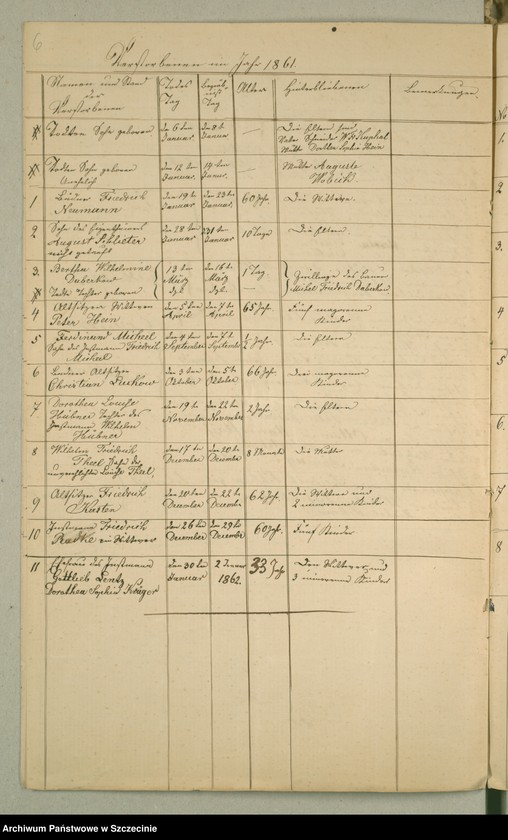 6
Verstorbenen im Jahr 1861.
Namen und Stand der Verstorbenen
Todes Tag
Begräbniß Tag
Alter
Hinterbliebenen
Bemerkungen
Todter Sohn geboren
den 6 ten Januar
den 8 t. Januar
Die Eltern sind
Vater Schneider
Mutter
Todter Sohn geboren
den 12 ten Januar.
14 ten Januar.
Mutter Auguste
1
Friedrich
Neumann
den 19 t. Januar
den 23 t. Januar.
60 Jahr.
Die Wittwe.
2
Sohn des Eigenthümers
August Schlieter
den 28 ten Januar
31 t. Januar
10 Tage
Die Eltern.
3.
Bertha Wilhelmine
Daberkow
13 ten März
den 16 t. März
1 Tag.
Zwillinge des
Michel Friedrich Daberkow
Todte Tochter geboren
4
Altsitzer Wittwe
Peter Hein
den 5 ten April
den 7 t. April
65 Jahr.
Fünf majorenne
Kinder
5
Ferdinand Michael
Sohn des Instmann Friedrich
Michael
den 4 ten September
den 7 t. September
½ Jahr.
die Eltern
6
Altsitzer
Christian
den 3 ten October
den 5 t. October
66 Jahr.
Drei majorenne
Kinder
7
Dorothea Louise
Hübner Tochter des
Instmann Wilhelm
Hübner
den 19 t. November
den 22 t. November
2 Jahr
Die Eltern
8
Wilhelm Friedrich
Theel Sohn der
unverehelichten Louise Theel.
den 17 t. December
den 20 t. December
8 Monat
Die Mutter
9
Altsitzer Friedrich
Kusten
den 20 ten December
den 22 t. December
62 Jahr.
Die Wittwe und
2 minorenne Kinder
10
Instmann Friedrich
Radke ein Wittwer
den 26 ten December
den 29 t. December
60 Jahr.
Fünf Kinder
11
Ehefrau des Instmann
Gottlieb Lentz
Dorothea Sophia Krüger
den 30 ten Januar
2 Januar 1862.
33 Jahr
Den Wittwer und
3 minorenne Kinder
1.
2
3.
4
5
6.
7
8
Archiwum Państwowe w Szczecinie